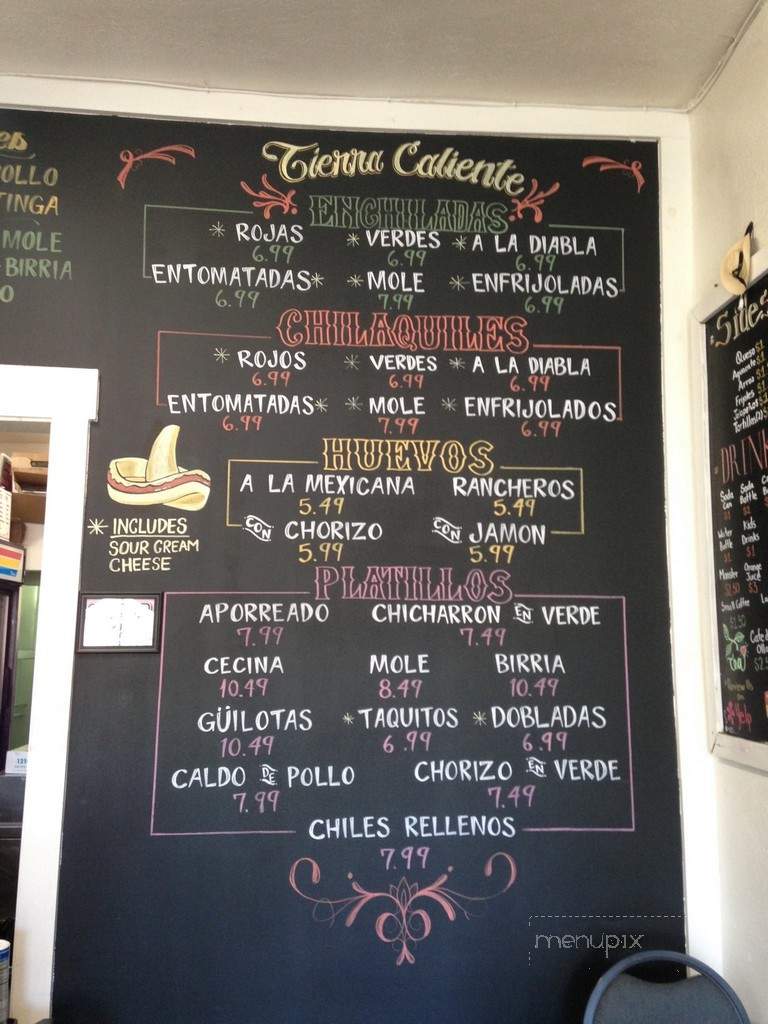 Tierra Caliente
ENCHILADAS
* ROJAS * VERDES * A LA DIABLA
6.99 6.99 6.99
ENTOMATADAS* * MOLE * ENFRIJOLADAS
6.99 7.99 6.99
CHILAQUILES
* ROJOS * VERDES * A LA DIABLA
6.99 6.99 6.99
ENTOMATADAS* * MOLE * ENFRIJOLADOS
6.99 7.99 6.99
HUEVOS
A LA MEXICANA RANCHEROS
5.49 5.49
CON CHORIZO CON JAMON
5.99 5.99
* INCLUDES
SOUR CREAM
CHEESE
PLATILLOS
APORREADO CHICHARRON EN VERDE
7.99 7.49
CECINA MOLE BIRRIA
10.49 8.49 10.49
GÜILOTAS *TAQUITOS *DOBLADAS
10.49 6.99 6.99
CALDO DE POLLO CHORIZO EN VERDE
7.99 7.49
CHILES RELLENOS
7.99
OLLO
TINGA
MOLE
BIRRIA
O
Side
Queso $1
DRINK
Soda Can Soda Bottle
Water Bottle Kids Drinks
$1 $1
Monster Orange Juice
$2.50 $3
Small Coffee
Tea
Yelp
menupix